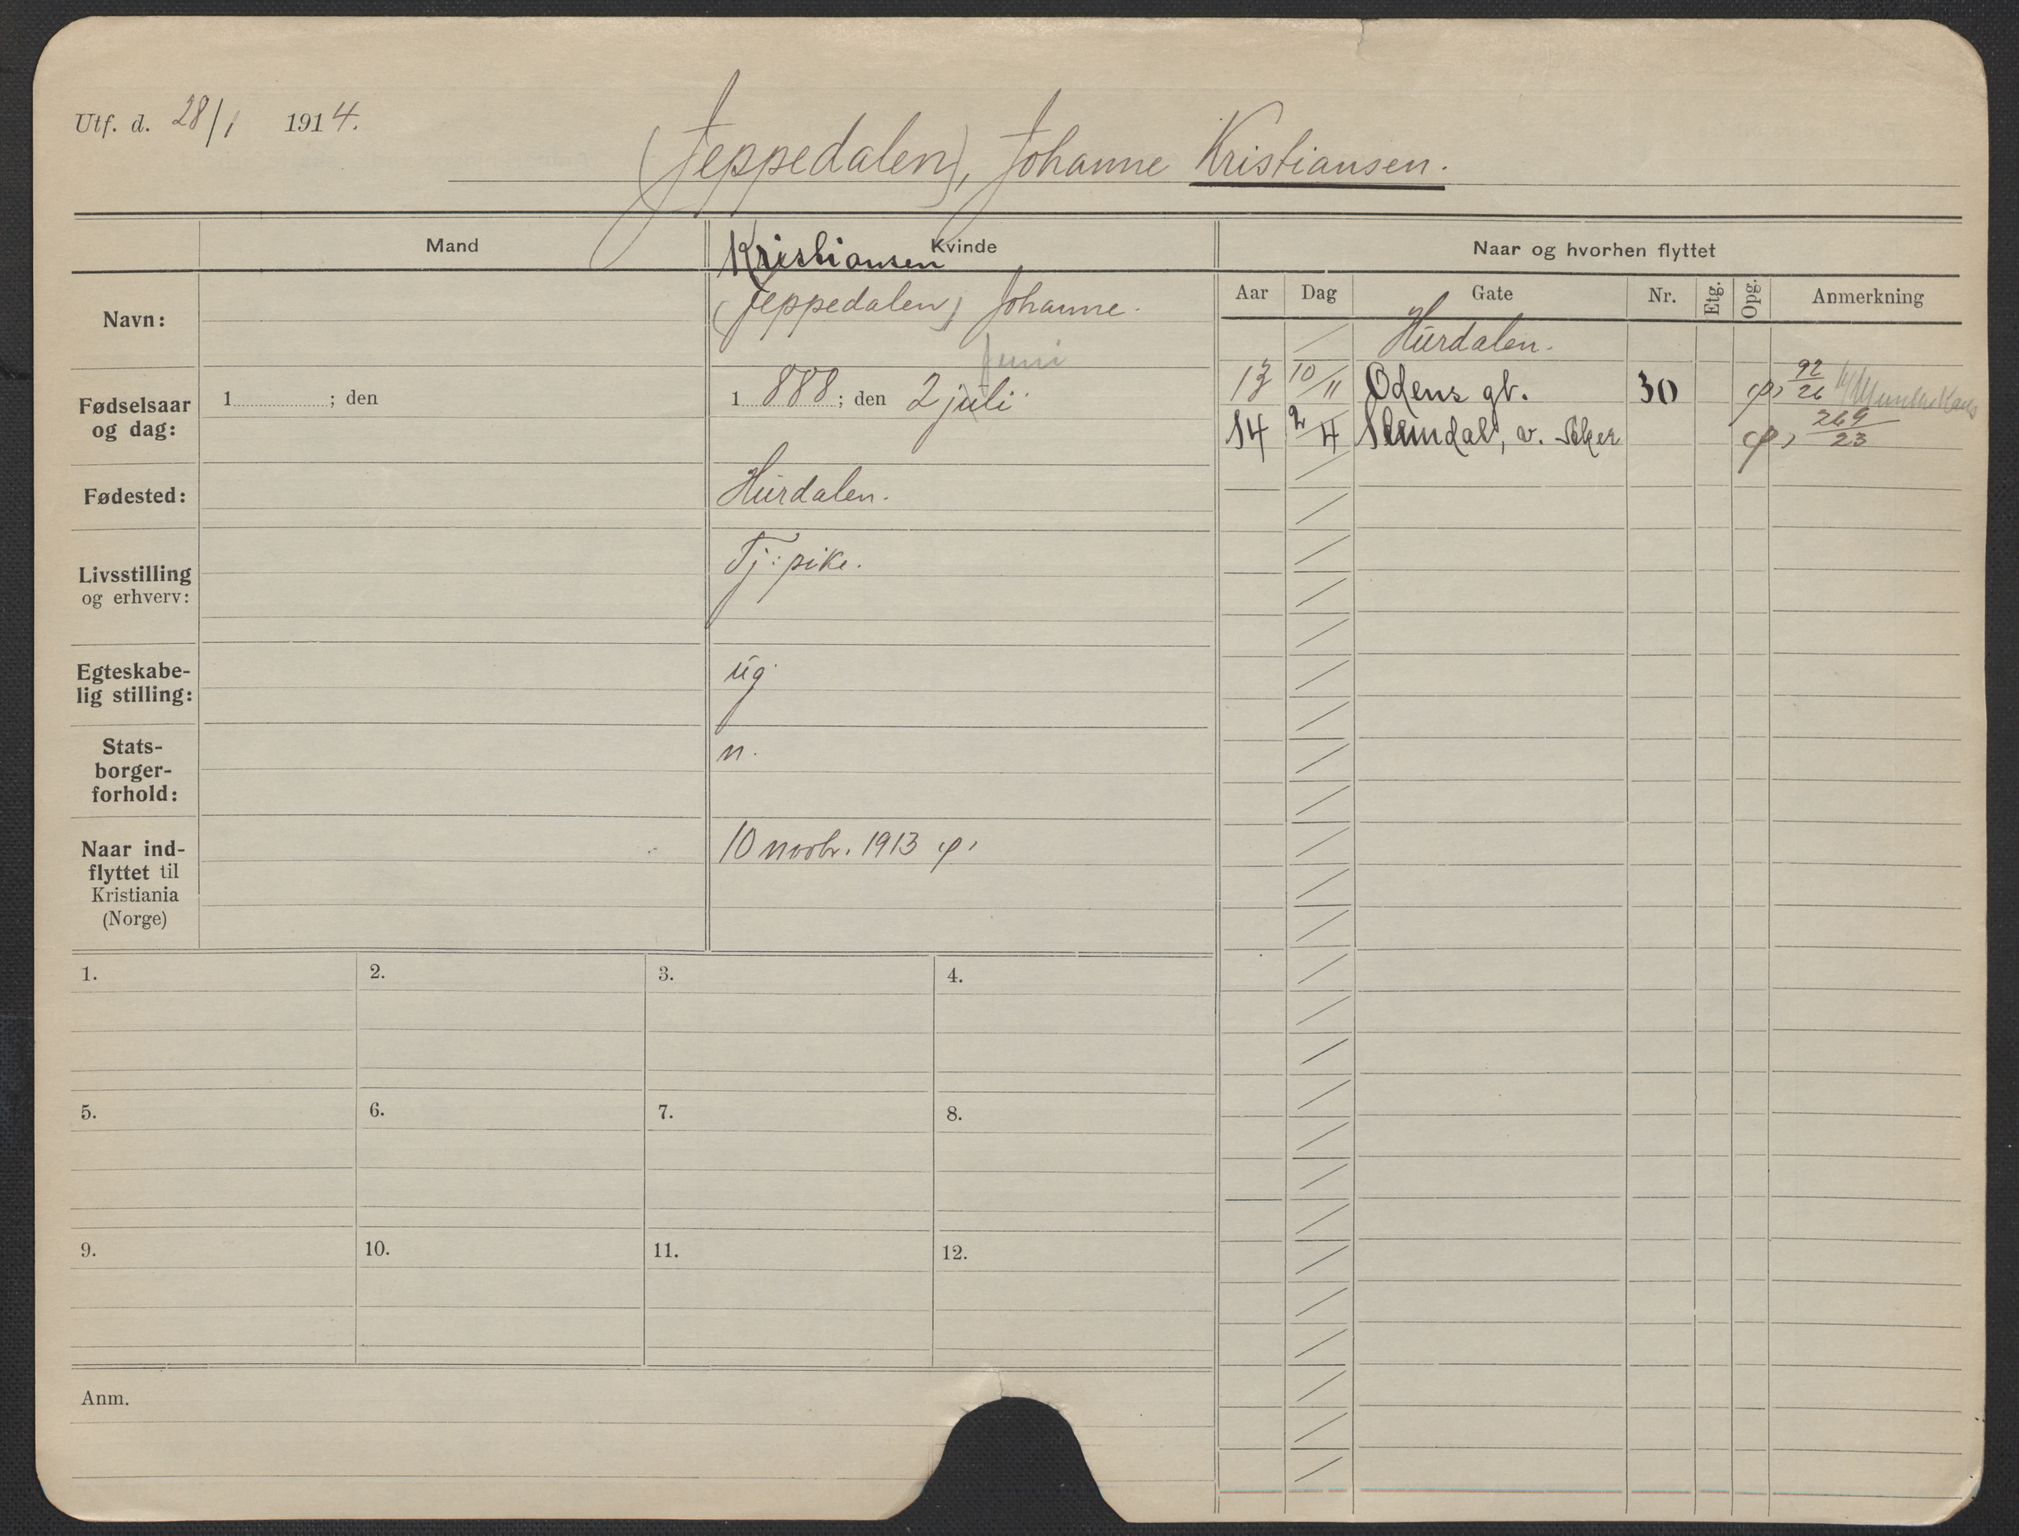 Utf. d. 28/1 1914.
(Jeppedalen), Johanne Kristiansen.
Mand
Kvinde
Naar og hvorhen flyttet
Aar Dag Gate Nr. Etg. Opg. Anmerkning
Navn:
Kristiansen
(Jeppedalen) Johanne.
Fødselsaar
og dag:
1 ; den
juni
1 888 ; den 2 juli
Fødested:
Hurdalen.
Livsstilling
og erhverv:
Tj: pike.
Egteskabe-
lig stilling:
ug
Stats-
borger-
forhold:
n.
Naar ind-
flyttet til
Kristiania
(Norge)
10 novbr. 1913 φ,
Hurdalen.
13 10/11 Odens gt. 30 φ, 92/26
14 2/4 Slemdal, v. Aker φ, 269/23
1. 2. 3. 4.
5. 6. 7. 8.
9. 10. 11. 12.
Anm.